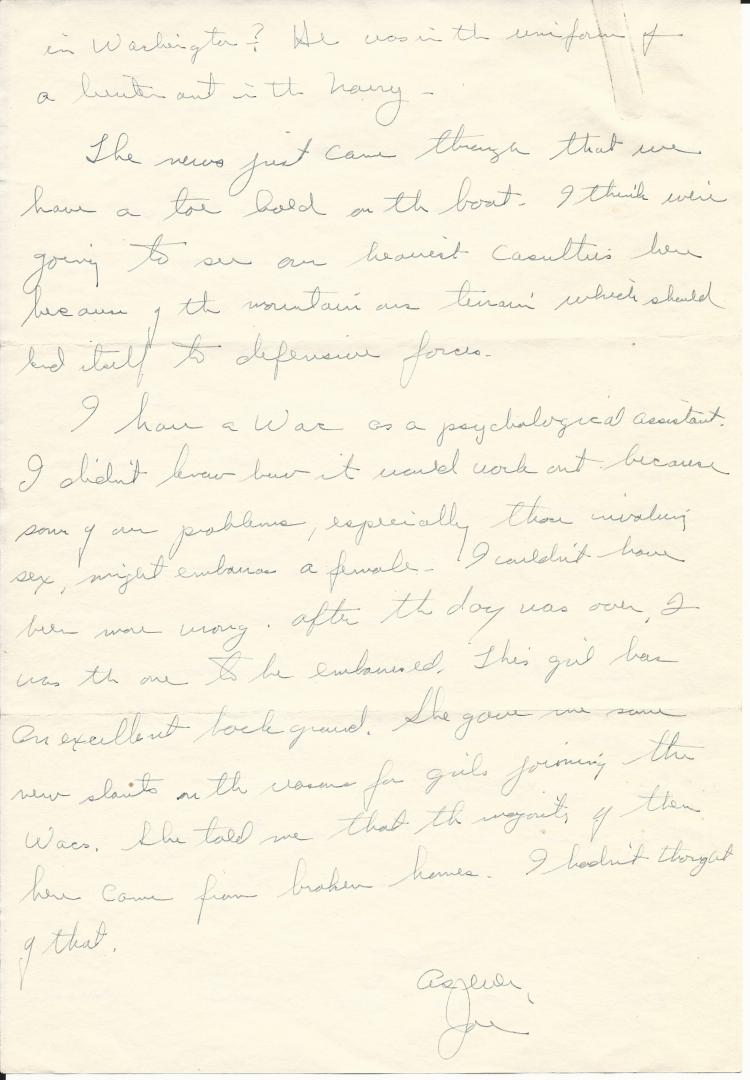 in Washington? He was in the uniform of
a lieutenant in the Navy -
The news just came through that we
have a toe hold on the boot. I think we're
going to see our heaviest casulties here
because of the mountainous terrain which should
lend itself to defensive forces.
I have a Wac as a psychological assistant.
I didn't know how it would work out because
some of our problems, especially those involving
sex, might embarass a female - I couldn't have
been more wrong. After the day was over, I
was the one to be embarrased. This girl has
an excellent background. She gave me some
new slants on the reasons for girls joining the
Wacs. She told me that the majority of them
here came from broken homes. I hadn't thought
of that.
As ever,
Joe